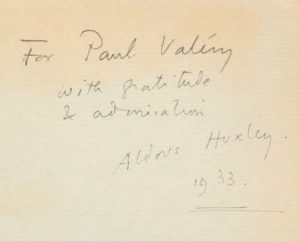 For Paul Valéry
with gratitude
& admiration
Aldous Huxley.
1933.